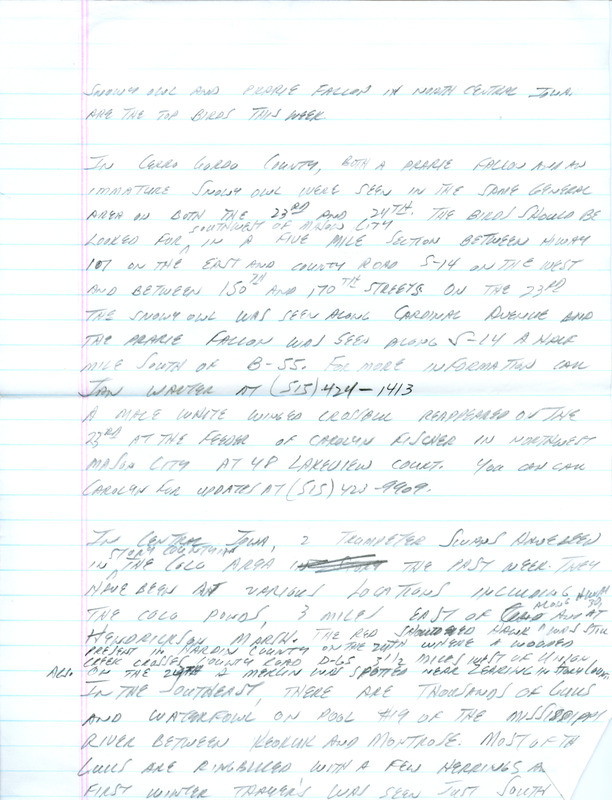 SNOWY OWL AND PRARIE FALLON IN NORTH CENTRAL IOWA
ARE THE TOP BIRDS THIS WEEK
IN CERRO GORDO COUNTY, BOTH A PRARIE FALLON AND AN
IMMATURE SNOWY OWL WERE SEEN IN THE SAME GENERAL
AREA ON BOTH THE 23RD AND 24TH. THE BIRDS SHOULD BE
SOUTHWEST OF MASON CITY
LOOKED FOR ^ IN A FIVE MILE SECTION BETWEEN HIWAY
107 ON THE EAST AND COUNTY ROAD S-14 ON THE WEST
AND BETWEEN 150TH AND 170TH STREETS ON THE 23RD
THE SNOWY OWL WAS SEEN ALONG CARDINAL AVENUE AND
THE PRARIE FALLON WAS SEEN ALONG S-14 A HALF
MILE SOUTH OF B-55. FOR MORE INFORMATION CALL
JAN WALTER AT (515) 424-1413
A MALE WHITE WINGED CROSSBILL REAPPEARED ON THE
23RD AT THE FEEDER OF CAROLYN FISCHER IN NORTHWEST
MASON CITY AT 48 LAKEVIEW COURT. YOU CAN CALL
CAROLYN FOR UPDATES AT (515) 423-9909.
IN CENTRAL IOWA, 2 TRUMPETER SWANS HAVE BEEN
STORY COUNTY IN
IN ^ THE COLO AREA THE PAST WEEK. THEY
HAVE BEEN AT VARIOUS LOCATIONS INCLUDING
ALONG HIWAY 30,
THE COLO PONDS, 3 MILES EAST OF AND AT
HENDRICKSON MARSH. THE RED SHOULDERED HAWK WAS STILL
PRESENT IN HARDIN COUNTY ON THE 24TH WHERE A WOODED
CREEK CROSSES COUNTY ROAD D-65 3 1/2 MILES WEST OF UNION
ALSO ON THE 24TH A MERLIN WAS SPOTTED NEAR ZEARING IN STORY COUNTY.
IN THE SOUTHEAST, THERE ARE THOUSANDS OF GULLS
AND WATERFOWL ON POOL #19 OF THE MISSISSIPPI
RIVER BETWEEN KEOKUK AND MONTROSE. MOST OF TH
GULLS ARE RINGBILLED WITH A FEW HERRINGS, A
FIRST WINTER THAYER'S WAS SEEN JUST SOUTH